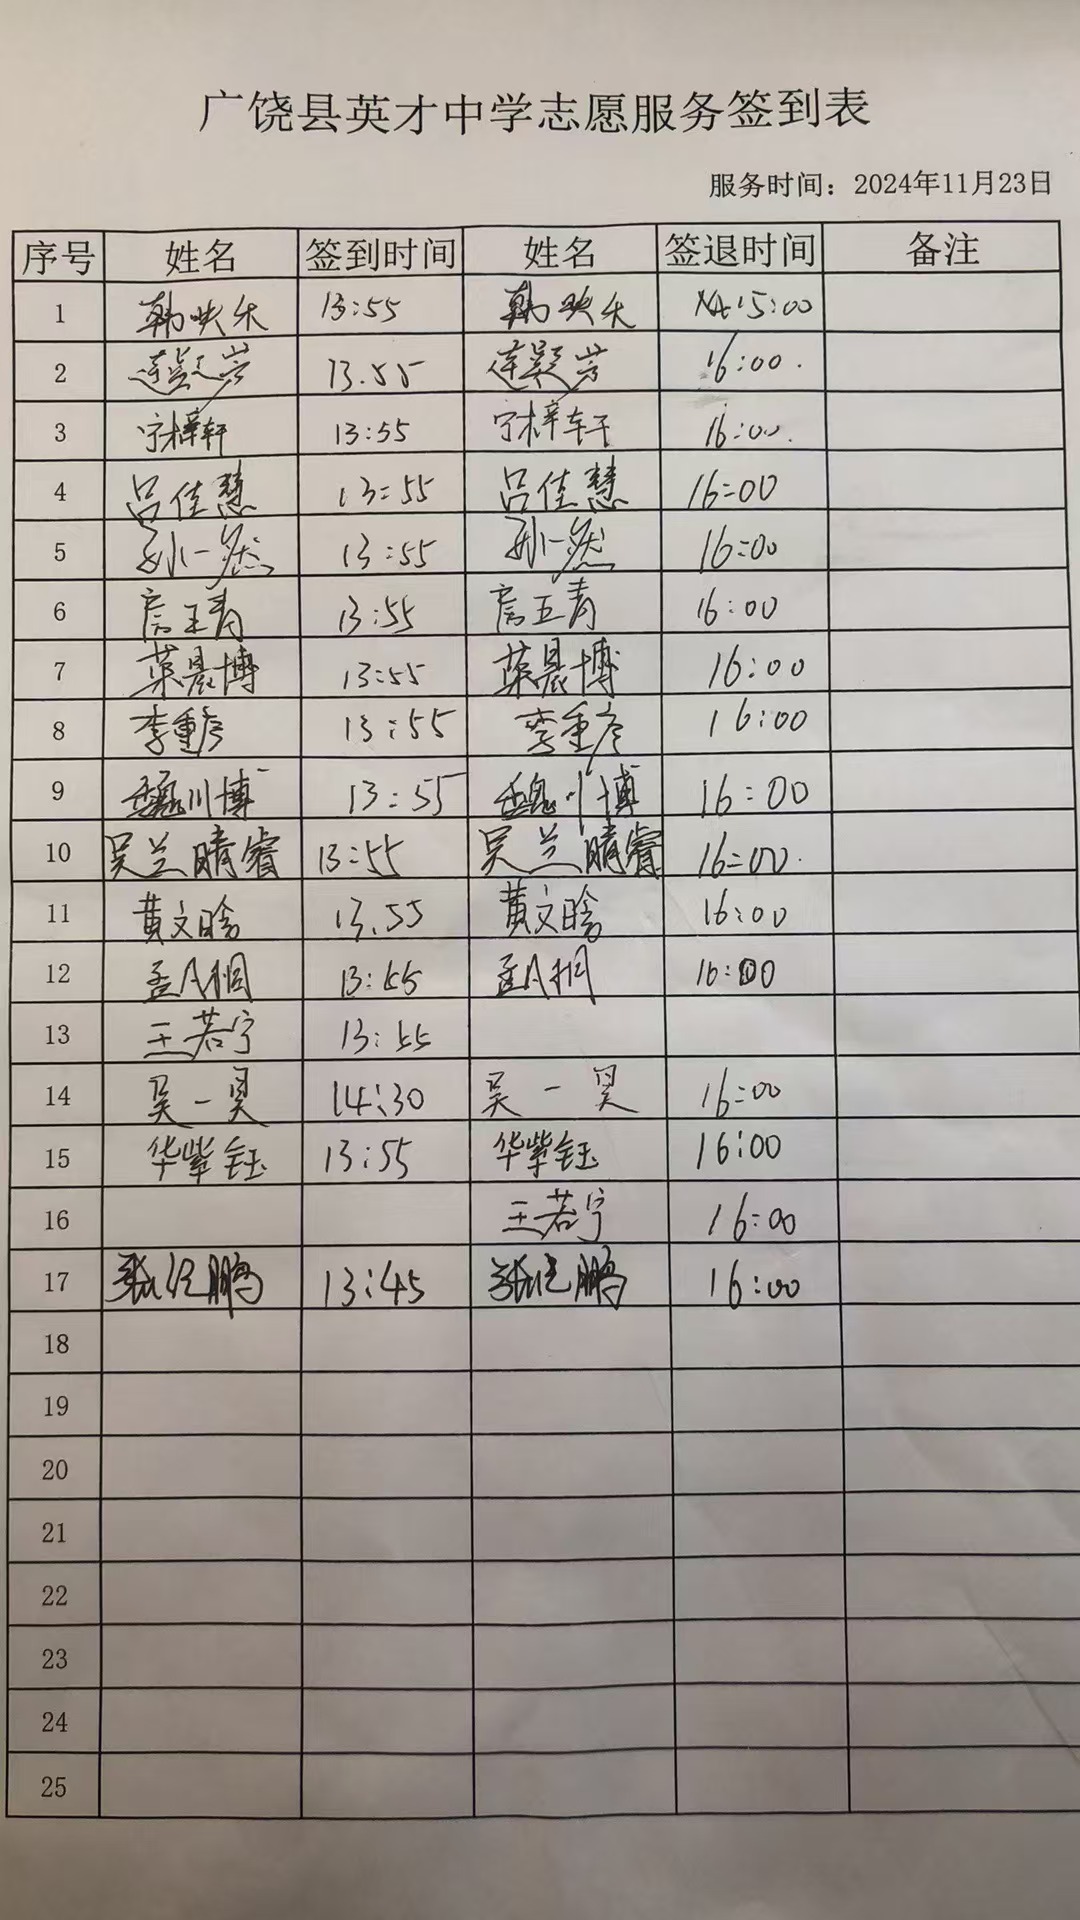 广饶县英才中学志愿服务签到表
服务时间：2024年11月23日
序号 姓名 签到时间 姓名 签退时间 备注
1 韩映乐 13:55 韩映乐 15:00
2 13.55 16:00.
3 宁梓轩 13:55 宁梓轩 16:00.
4 吕佳慧 13:55 吕佳慧 16:00
5 孙一然 13:55 孙一然 16:00
6 13:55 16:00
7 晨博 13:55 晨博 16:00
8 李重彦 13:55 李重彦 16:00
9 魏川博 13:55 魏川博 16:00
10 吴兰晴睿 13:55 吴兰晴睿 16:00.
11 黄文晗 13.55 黄文晗 16:00
12 13:55 16:00
13 王若宁 13:55
14 吴一昊 14:30 吴一昊 16:00
15 华紫钰 13:55 华紫钰 16:00
16 王若宁 16:00
17 张 鹏 13:45 张 鹏 16:00
18
19
20
21
22
23
24
25